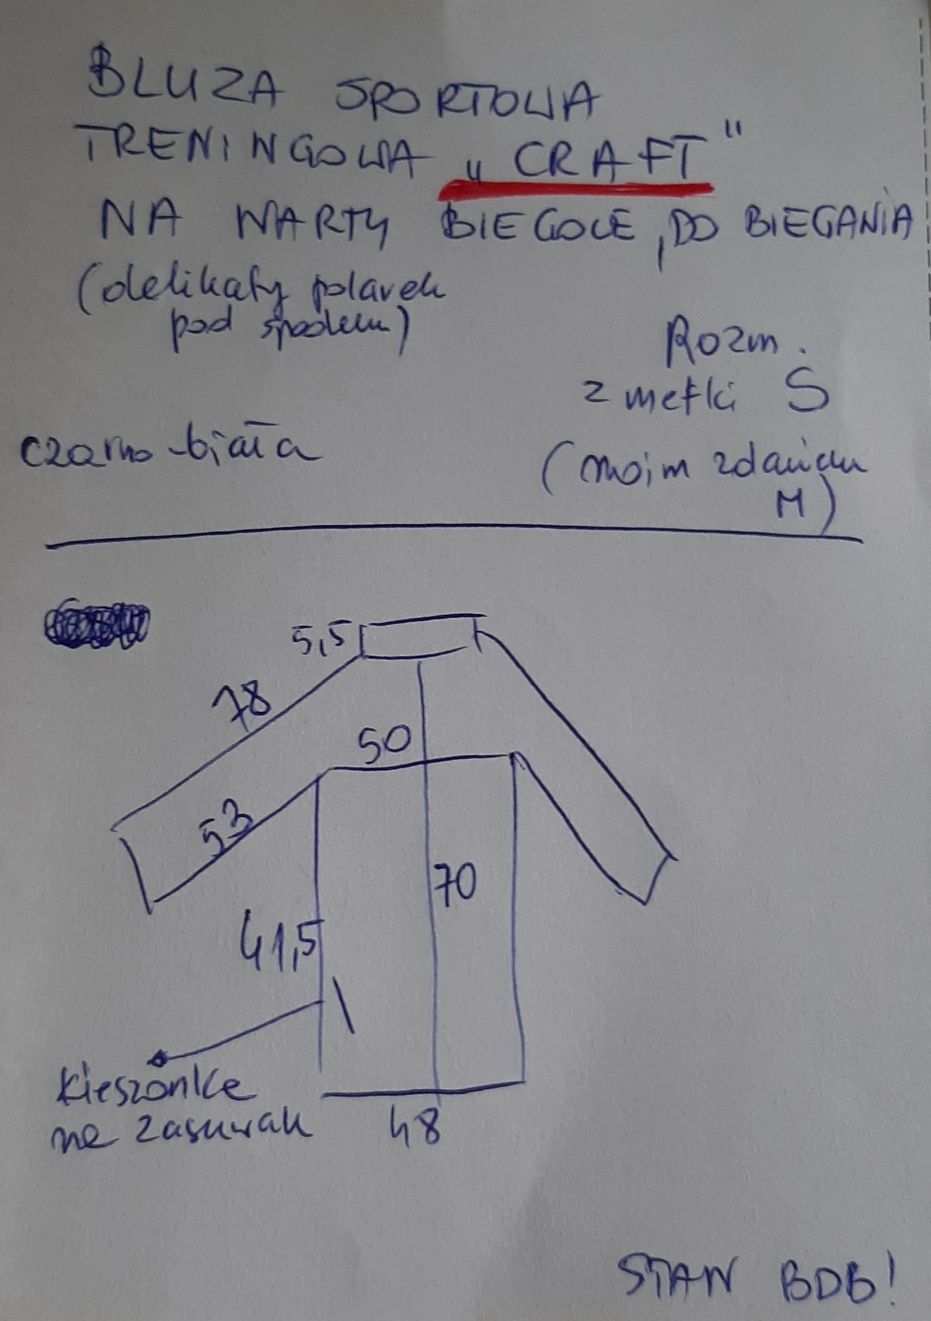 BLUZA SPORTOWA
TRENINGOWA „CRAFT”
NA NARTY BIEGOWE, DO BIEGANIA
(delikatny polarek
pod spodem)
Rozm.
z metki S
czarno-biała
(moim zdaniem
M)
5,5
78
50
53
70
41,5
kieszonka
na zasuwak
48
STAN BDB!